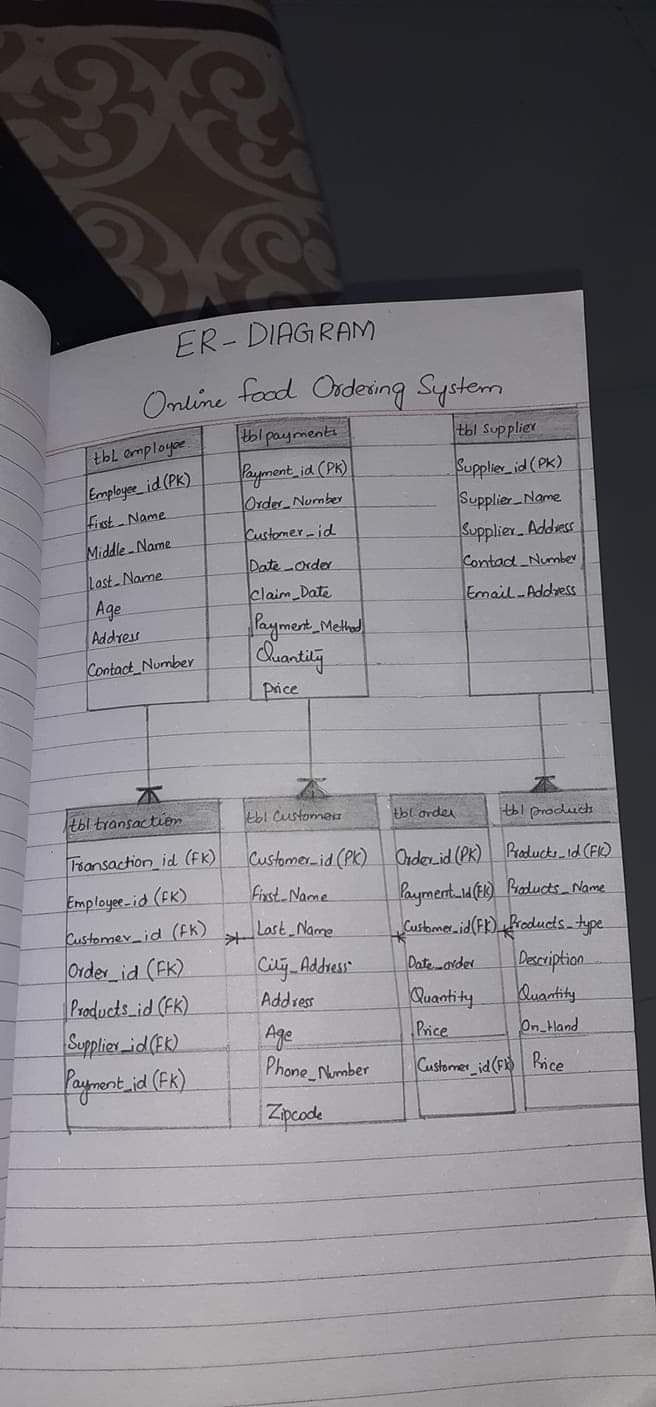 ER-DIAGRAM
Online food Ordering System
tbl employee
Employee_id(PK)
First_Name
Middle_Name
Last_Name
Age
Address
Contact_Number
tbl payments
Payment_id (PK)
Order_Number
Customer_id
Date_Order
Claim_Date
Payment_Method
Quantity
Price
tbl Supplier
Supplier_id(PK)
Supplier_Name
Supplier_Address
Contact_Number
Email_Address
tbl transaction
Transaction_id (FK)
Employee_id (FK)
Customer_id (FK)
Order_id (FK)
Products_id (FK)
Supplier_id(FK)
Payment_id (FK)
tbl Customers
Customer_id(PK)
First_Name
Last_Name
City_Address
Address
Age
Phone_Number
Zipcode
tbl order
Order_id (PK)
Payment_id(FK)
Customer_id(FK)
Date_order
Quantity
Price
Customer_id(FK)
tbl products
Products_id (FK)
Products_Name
Products_type
Description
Quantity
On_Hand
Price